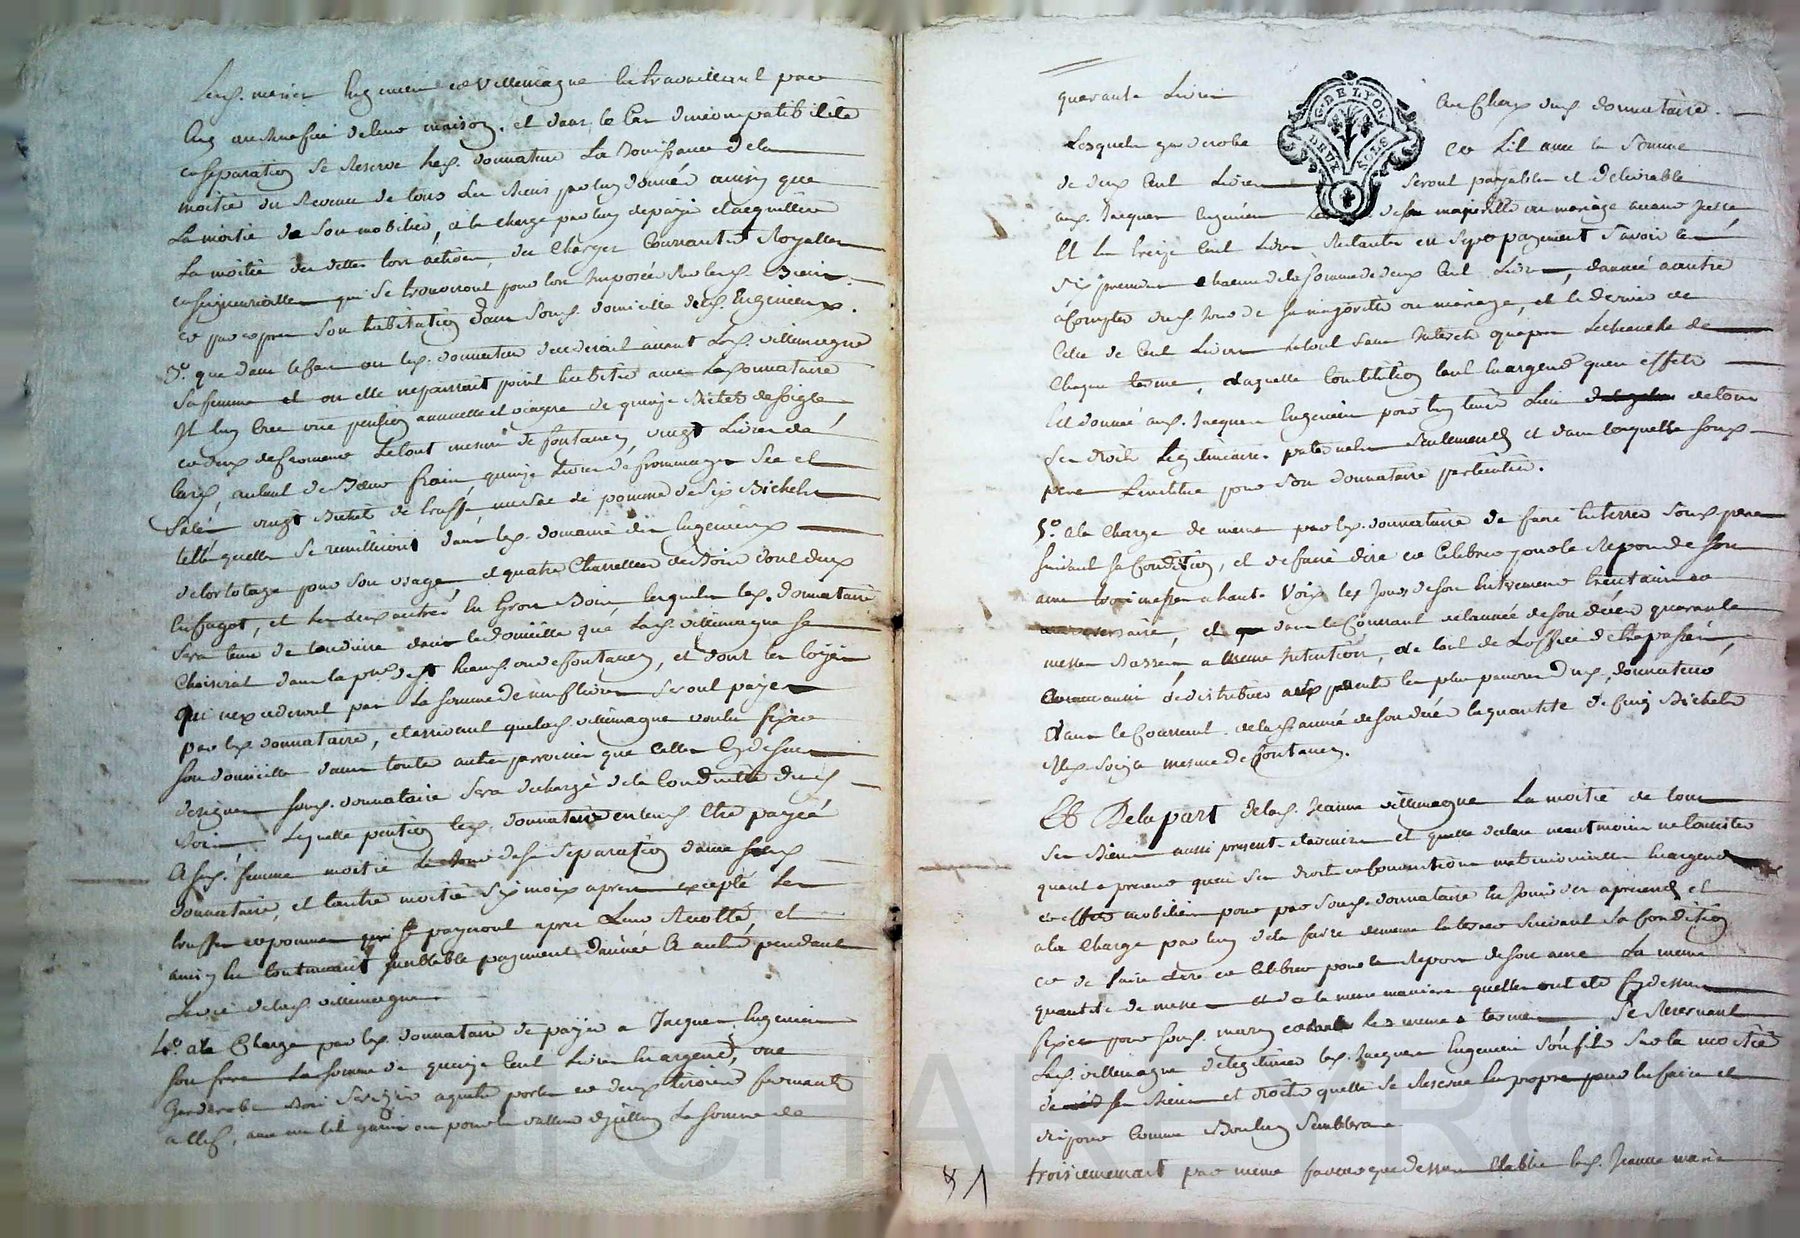 Led. marier Engemieu et Villemagne en travaillant par
eux au Benefice de leur maison, et dans le Cas dincompatibilité
et separation se Reserve led. donnateur La Jouissance de la
moitié du Revenu de tous les Biens par luy donnés ainsy que
La moitié de Son mobilier, à la charge par luy de payer et acquitter
La moitié des dettes lors actives, des Charges Courantes Royalles
et seigneurialles qui se trouveront pour lors imposées sur lesd. Biens
et par exprès Son habitation dans Sond. domicille desd. Engemieux.
3.° que dans le Cas ou led. donnateur decederait avant Lad. villemagne
Sa femme et ou elle ne pourrait point habiter avec Le donnataire
Il luy Cree une pension annuelle et viagere de quinze Bichets de seigle
et deux de froment Le tout mesure de fontanes, vingt Livres de
Lard, autant de Beure frais, quinze Livres de frommages Sec et
Salé, vingt Bichet de truffe, un sac de pomme de Six Bichets
telle quelle se recuilliront dans led. domaine des Engemieux
de l'ortolage pour son usage, et quatre Charretées de Bois dont deux
en fagot, et les deux autres en Gros Bois lesquels led. donnataire
Sera tenu de conduire dans le domicille que Lad. villemagne se
Choisirat dans la par.sse de st heand ou de fontanes, et dont les loyers
qui nexcederont pas La somme de neuf livres seront payés
par led. donnataire, et arrivant que lad. villemagne voulu fixer
son domicille dans toute autre parroisse que celles Cy dessus
designées Sond. donnataire sera dechargé de la Conduitte dud.
Bois, Laquelle pention led. donnataire est tenu de payée
A lad. femme moitié Le Jour de sa Separation davec Sond.
donnataire, et Lautre moitié Six mois apres excepté les
truffes et pommes qui se payeront apres Leur Recolte, et
ainsy En Continuant semblable payement dannée A autre pendant
La vie de lad. villemagne.
4.° a la Charge par led. donnataire de payer a Jacques Engemieu
son frere La somme de quinze Cent Livres En argent, une
Garderobe Bois Serisier aquatre portes et deux tiroirs fermante
a Clef, avec un lit garni ou pour la valleur d'jcelluy La somme de
quarante Livres Au Choix dud. donnataire.
Lesquels garderobe et Lit avec la Somme
de deux Cent Livres Seront payables et delivrable
aud. Jacques Engemieu Lors de sa majorité ou mariage avant jcelle
Et les treize Cent Livres Restantes en Sept payements Savoir les
Six premiers Chacun de la Somme de deux Cent Livres, dannée a autre
à Compter dud. Jour de sa majorité ou mariage, et le dernier de
Celle de Cent Livres Le tout Sans Interets quapres Lecheance de
Chaque terme, Laquelle Constitution tant En argent quen effets
Est donnée aud. Jacques Engemieu pour luy tenir Lieu de tous
Ses droits Legitimaires paternels Seulement et dans lesquelle Sond.
pere L'institue pour Son donnataire particulier.
5.° a la Charge de meme par led. donnataire de faire Enterrer Sond. pere
Suivant sa Condition, et de faire dire et Celebrer pour le Repos de Son
ame trois messes a haute Voix les Jours de son Enterrement trentaine et
anniversaire, et dans le Courrant de lannée de son décès quarante
messes Basses a meme Intention, et de tout de Loffice des trepassés,
Comme aussi de distribuer aux parents les plus pauvres dud. donnateur
dans le Courrent de lad. année de son décès la quantité de Cinq Bichets
Bled Seigle mesure de fontanes.
Et De la part de lad. Jeanne villemagne La moitié de tous
Ses Biens aussi present et avenir et quelle declare neantmoins ne Consister
quant a present quen Ses droits et Conventions matrimonielles En argent
et effets mobiliers pour par Sond. donnataire En Jouir des apresent et
a la Charge par luy de la faire de meme Enterrer Suivant Sa Condition
et de faire dire et Celebrer pour le Repos de Son ame La meme
quantité de messes et de la meme maniere quelles ont été Cy dessus
fixées pour Sond. mary et dans les memes termes. Se Reservant
Lad. villemagne de legitimer led. Jacques Engemieu Son fils Sur la moitié
de Ses Biens et droits quelle Se Reserve En propre pour En faire et
disposer Comme Bon luy Semblera.
troisiemement par meme faveur que dessus Etablie lad. Jeanne marie
G. DE LYON
DEUX SOLS
81
CHAREYRON